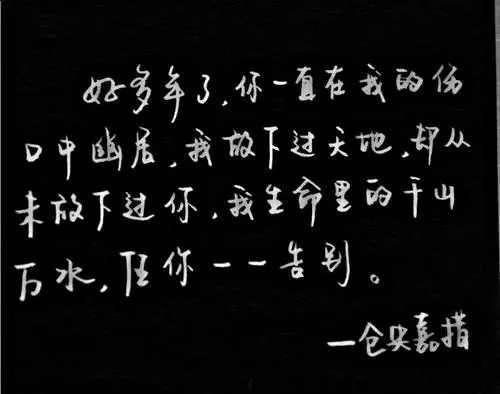 好多年了，你一直在我的伤
口中幽居，我放下过天地，却从
未放下过你，我生命里的千山
万水，任你一一告别。
一仓央嘉措